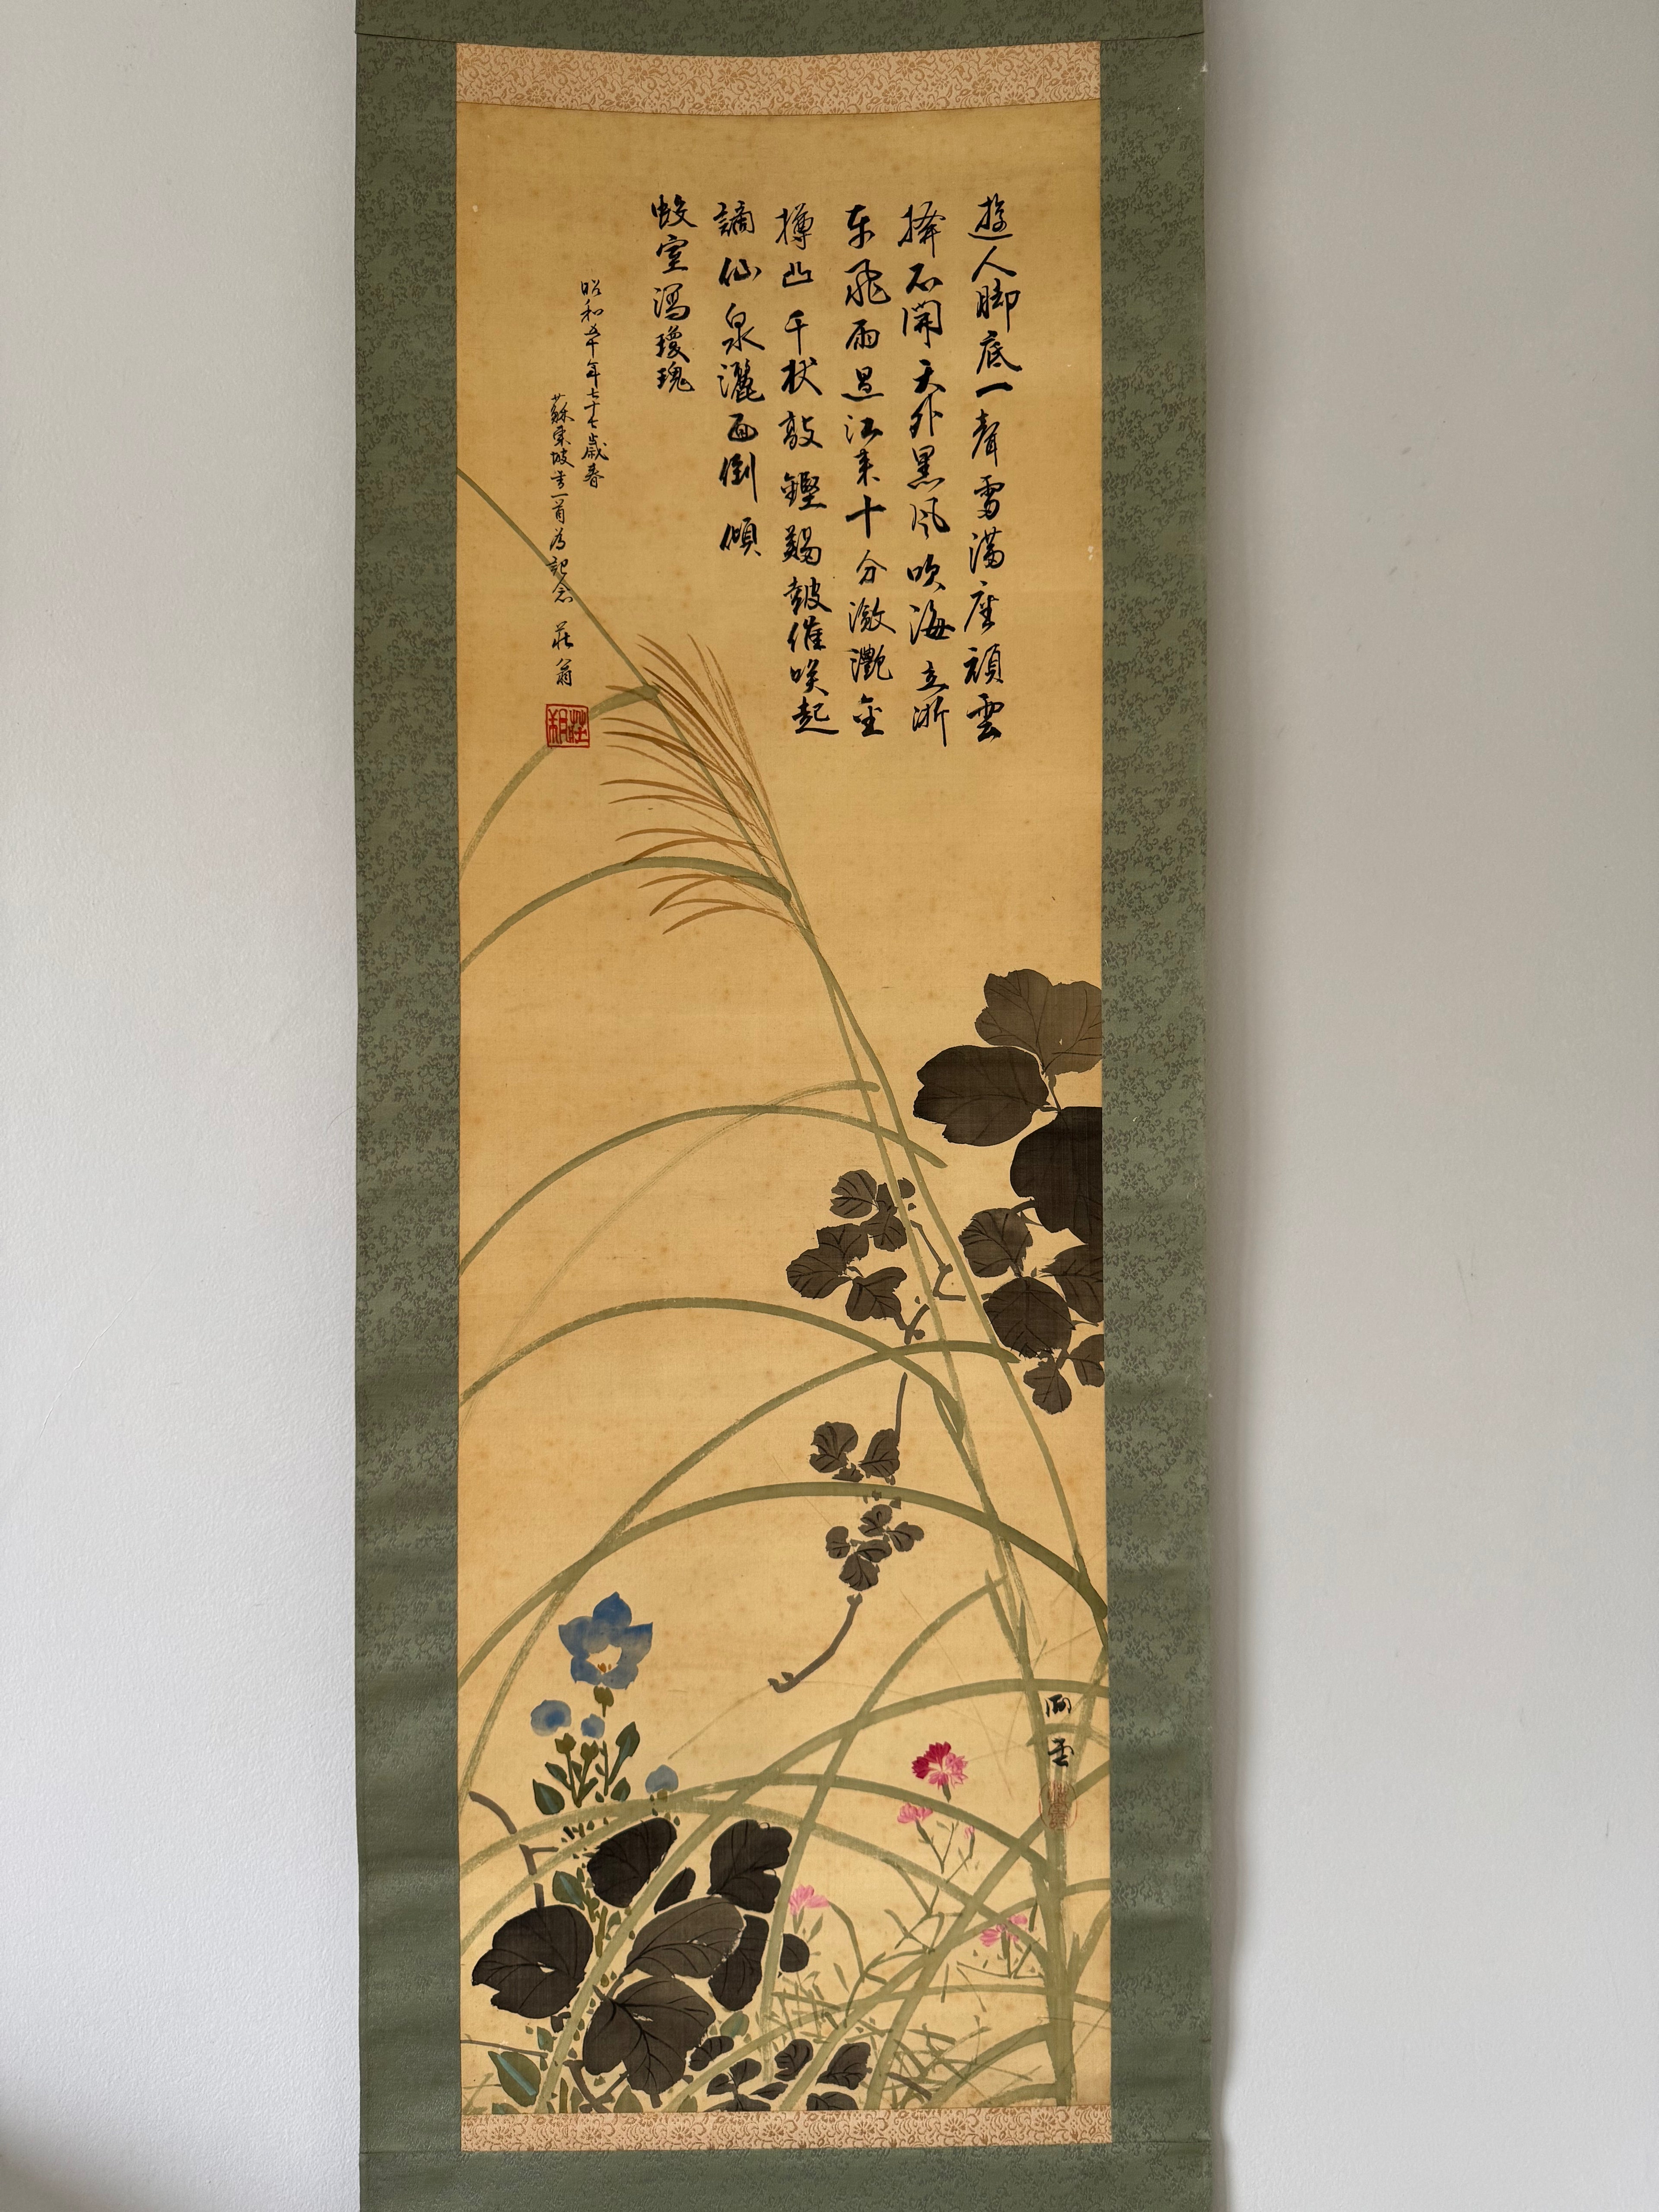 遊人脚底一聲雷満座頑雲
撥不開天外黒風吹海立浙
東飛雨過江来十分激灔金
樽凸千杖敲鏗羯皷催喚起
謫仙泉灑面倒傾
蛟室瀉瓊瑰
昭和五十年七十七歳春
蘇東坡詩一首為記念 莊翁